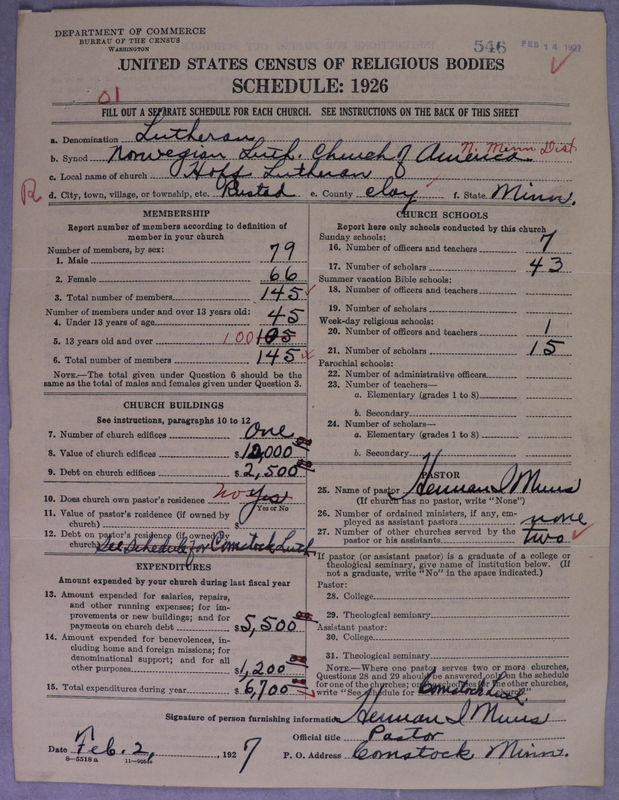 DEPARTMENT OF COMMERCE
BUREAU OF THE CENSUS
WASHINGTON
546 FEB 14 1927
UNITED STATES CENSUS OF RELIGIOUS BODIES
SCHEDULE: 1926
01
FILL OUT A SEPARATE SCHEDULE FOR EACH CHURCH. SEE INSTRUCTIONS ON THE BACK OF THIS SHEET
a. Denomination Lutheran
b. Synod Norwegian Luth. Church of America N. Minn Dist
c. Local name of church Hoff Lutheran
R d. City, town, village, or township, etc. Rustad e. County Clay f. State Minn.
MEMBERSHIP
Report number of members according to definition of
member in your church
Number of members, by sex:
1. Male 79
2. Female 66
3. Total number of members 145
Number of members under and over 13 years old:
4. Under 13 years of age 45
5. 13 years old and over 100 105
6. Total number of members 145
NOTE.—The total given under Question 6 should be the
same as the total of males and females given under Question 3.
CHURCH BUILDINGS
See instructions, paragraphs 10 to 12
7. Number of church edifices One
8. Value of church edifices $10,000
9. Debt on church edifices $2,500
10. Does church own pastor's residence no Yes
Yes or No
11. Value of pastor's residence (if owned by
church) $
12. Debt on pastor's residence (if owned by
church) See Schedule for Comstock Luth
EXPENDITURES
Amount expended by your church during last fiscal year
13. Amount expended for salaries, repairs,
and other running expenses; for im-
provements or new buildings; and for
payments on church debt $5,500
14. Amount expended for benevolences, in-
cluding home and foreign missions; for
denominational support; and for all
other purposes $1,200
15. Total expenditures during year $6,700
CHURCH SCHOOLS
Report here only schools conducted by this church
Sunday schools:
16. Number of officers and teachers 7
17. Number of scholars 43
Summer vacation Bible schools:
18. Number of officers and teachers
19. Number of scholars
Week-day religious schools:
20. Number of officers and teachers 1
21. Number of scholars 15
Parochial schools:
22. Number of administrative officers
23. Number of teachers—
a. Elementary (grades 1 to 8)
b. Secondary
24. Number of scholars—
a. Elementary (grades 1 to 8)
b. Secondary
PASTOR
25. Name of pastor Herman I Muus
(If church has no pastor, write "None")
26. Number of ordained ministers, if any, em-
ployed as assistant pastors none
27. Number of other churches served by the
pastor or his assistants two
If pastor (or assistant pastor) is a graduate of a college or
theological seminary, give name of institution below. (If
not a graduate, write "No" in the space indicated.)
Pastor:
28. College
29. Theological seminary
Assistant pastor:
30. College
31. Theological seminary
NOTE.—Where one pastor serves two or more churches,
Questions 28 and 29 should be answered only on the schedule
for one of the churches; on the schedules for the other churches,
write "See schedule for Comstock Luth church."
Signature of person furnishing information Herman I Muus
Official title Pastor
Date Feb. 2, 1927 P. O. Address Comstock Minn.
8—5518 a